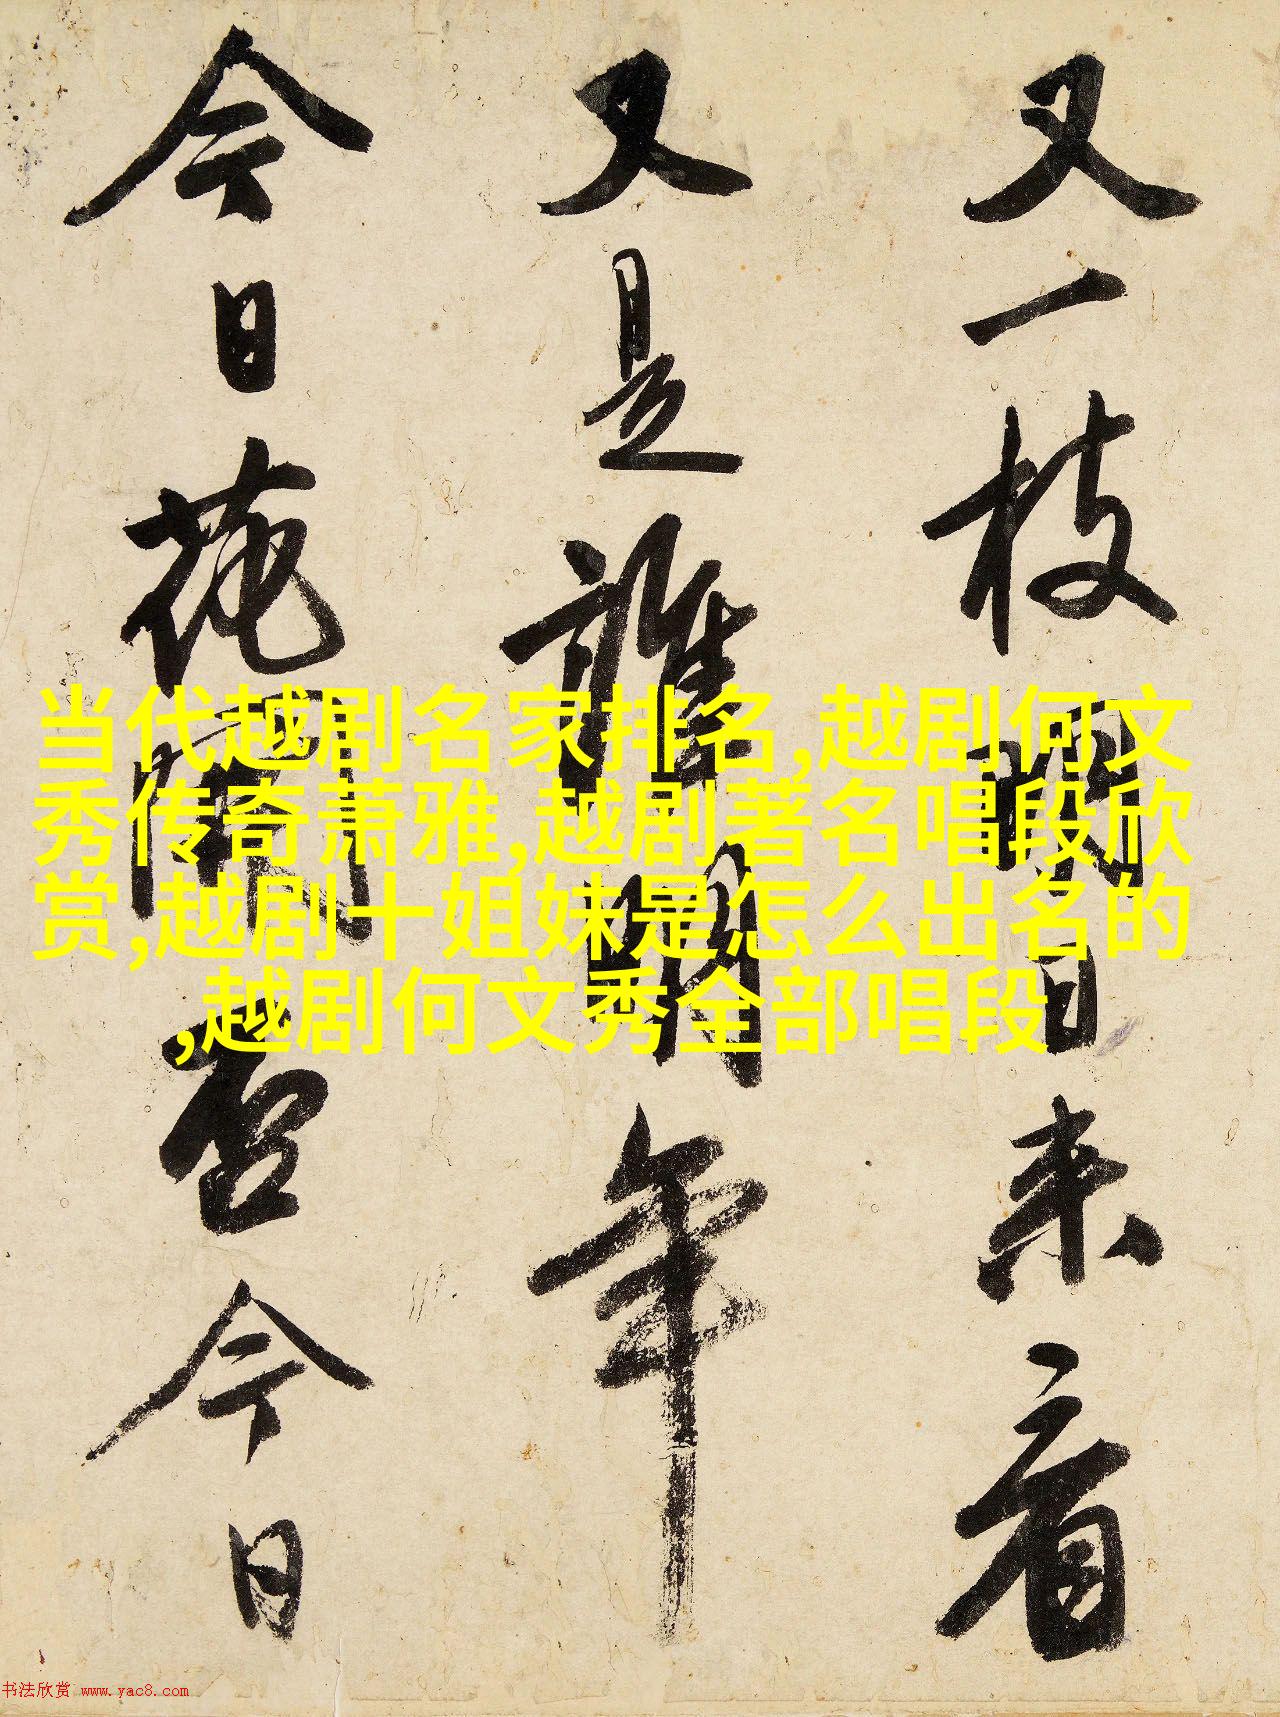 又一枝開明日来看
又是誰開明年
今日花開否今日
当代越剧名家排名,越剧何文
秀传奇萧雅,越剧著名唱段欣
赏,越剧十姐妹是怎么出名的
,越剧何文秀全部唱段
书法欣赏 www.yac8.com